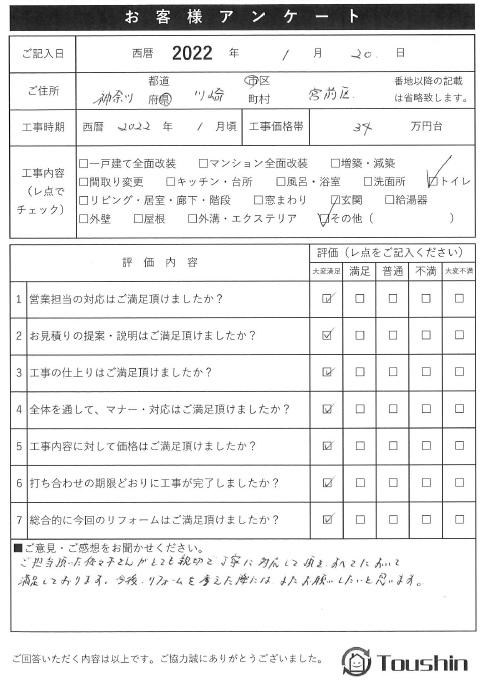 お客様アンケート
ご記入日 西暦 2022 年 1 月 20 日
ご住所 神奈川 都道府県 川崎 市区町村 宮前区 番地以降の記載は省略致します。
工事時期 西暦 2022 年 1 月頃 工事価格帯 34 万円台
工事内容（レ点でチェック）
□一戸建て全面改装 □マンション全面改装 □増築・減築
□間取り変更 □キッチン・台所 □風呂・浴室 □洗面所 ☑トイレ
□リビング・居室・廊下・階段 □窓まわり □玄関 □給湯器
□外壁 □屋根 □外溝・エクステリア ☑その他（ ）
評価内容 評価（レ点をご記入ください）
大変満足 満足 普通 不満 大変不満
1 営業担当の対応はご満足頂けましたか？ ☑ □ □ □ □
2 お見積りの提案・説明はご満足頂けましたか？ ☑ □ □ □ □
3 工事の仕上りはご満足頂けましたか？ ☑ □ □ □ □
4 全体を通して、マナー・対応はご満足頂けましたか？ ☑ □ □ □ □
5 工事内容に対して価格はご満足頂けましたか？ ☑ □ □ □ □
6 打ち合わせの期限どおりに工事が完了しましたか？ ☑ □ □ □ □
7 総合的に今回のリフォームはご満足頂けましたか？ ☑ □ □ □ □
■ご意見・ご感想をお聞かせください。
ご担当頂いた佐々木さんがとても親切で丁寧に対応して頂き、すべてにおいて
満足しております。今後、リフォームを考えた際には、またお願いしたいと思います。
ご回答いただく内容は以上です。ご協力誠にありがとうございました。
Toushin